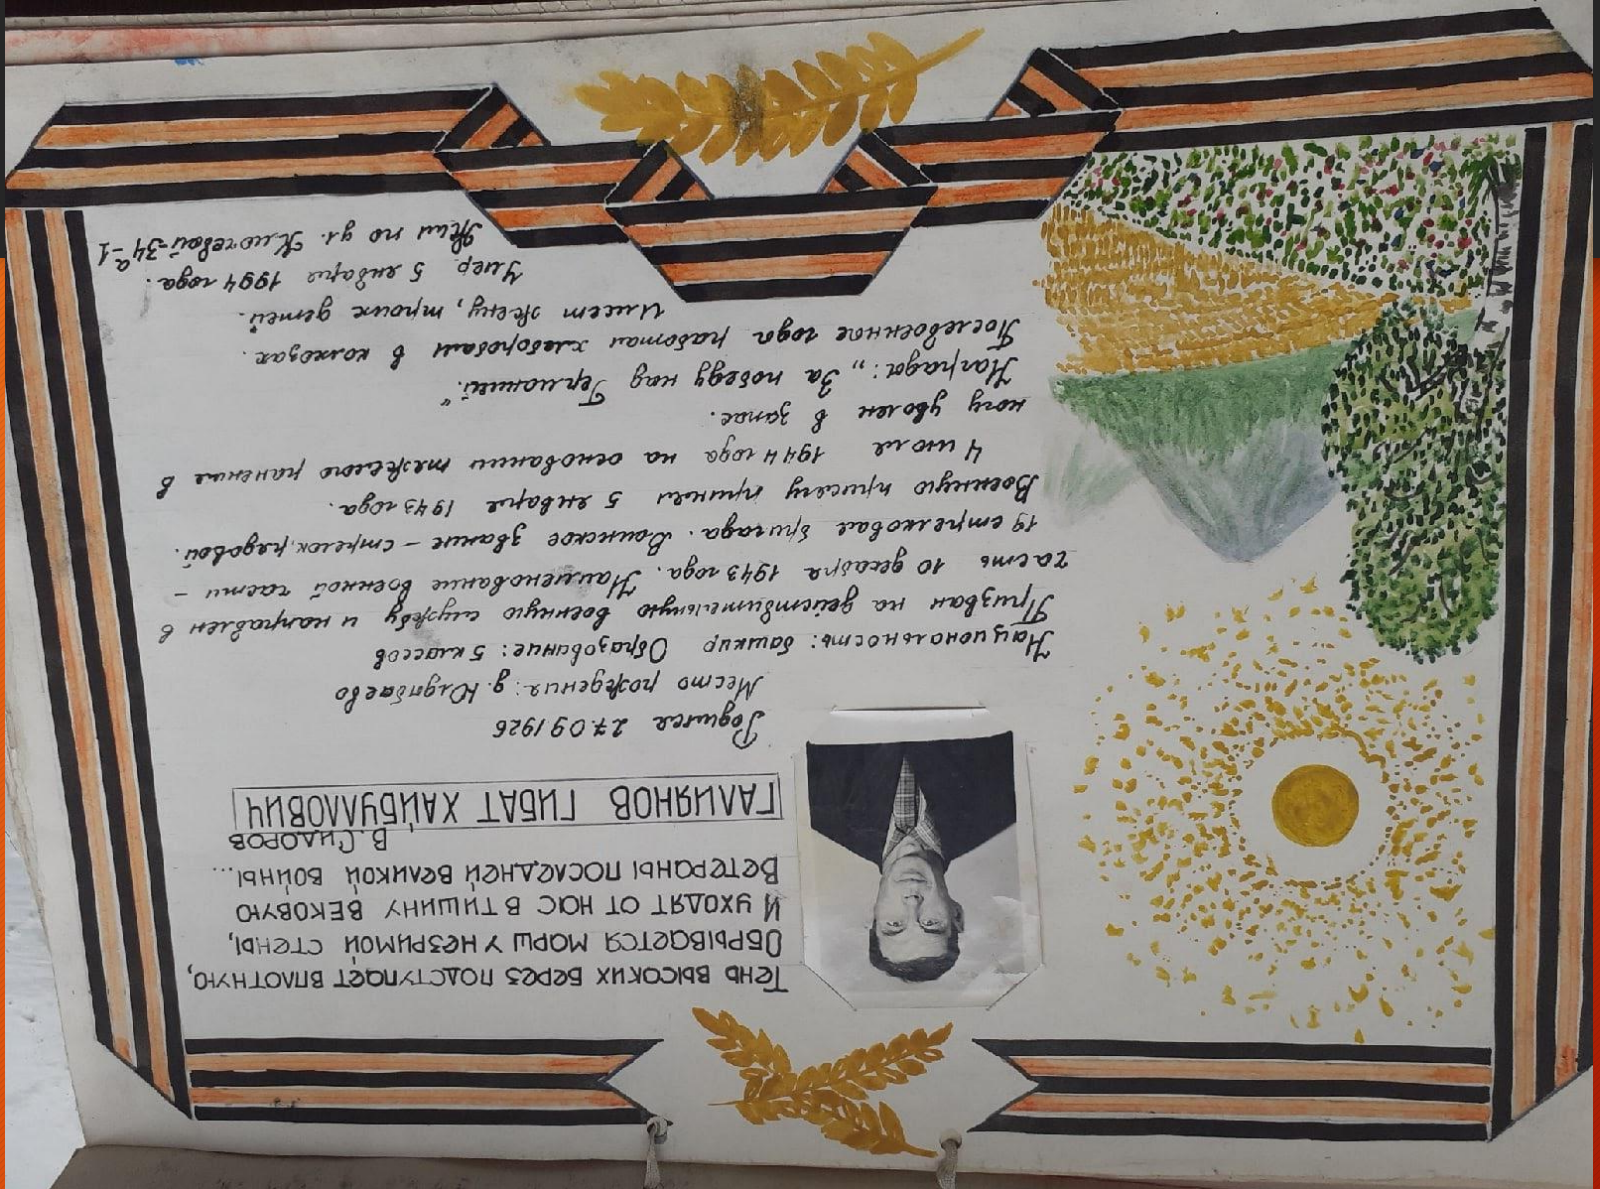 Тень высоких берез подступает вплотную,
Обрывается марш у незримой стены,
И уходят от нас в тишину вековую
Ветераны последней великой войны...
В. Сидоров
ГАЛИЯНОВ ГИБАТ ХАЙБУЛЛОВИЧ
Родился 27.09.1926
Место рождения: д. Юлдыбаево
Национальность: башкир Образование: 5 классов
Призван на действительную военную службу и направлен в
часть 10 декабря 1943 года. Наименование военной части –
19 стрелковая бригада. Воинское звание – стрелок, рядовой.
Военную присягу принял 5 января 1943 года.
4 июля 1944 года на основании тяжелого ранения в
ногу уволен в запас.
Награда: „За победу над Германией“.
Послевоенное года работал хлеборобом в колхозах.
Имеет жену, троих детей.
Умер 5 января 1994 года.
Жил по ул. Ключевой-34а-1